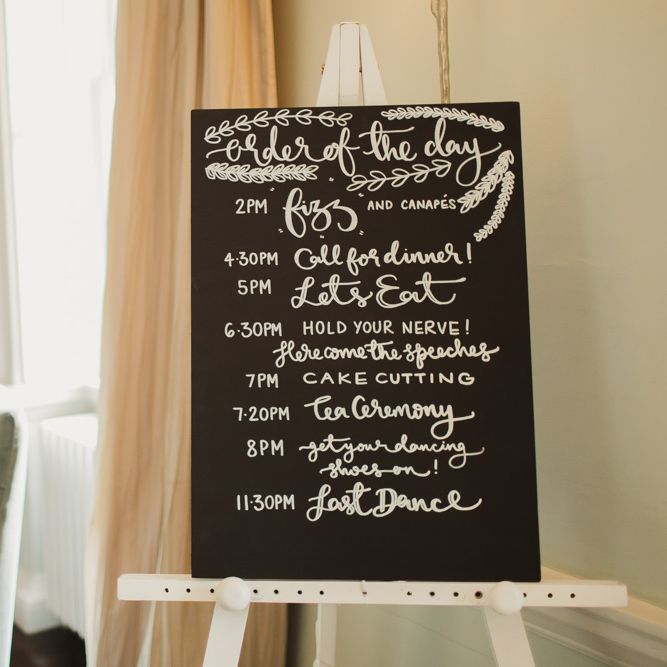 order of the day
2PM "fizz" AND CANAPÉS
4·30PM Call for dinner!
5PM Lets Eat
6·30PM HOLD YOUR NERVE!
Here come the speeches
7PM CAKE CUTTING
7·20PM Tea Ceremony
8PM get your dancing
shoes on!
11·30PM Last Dance